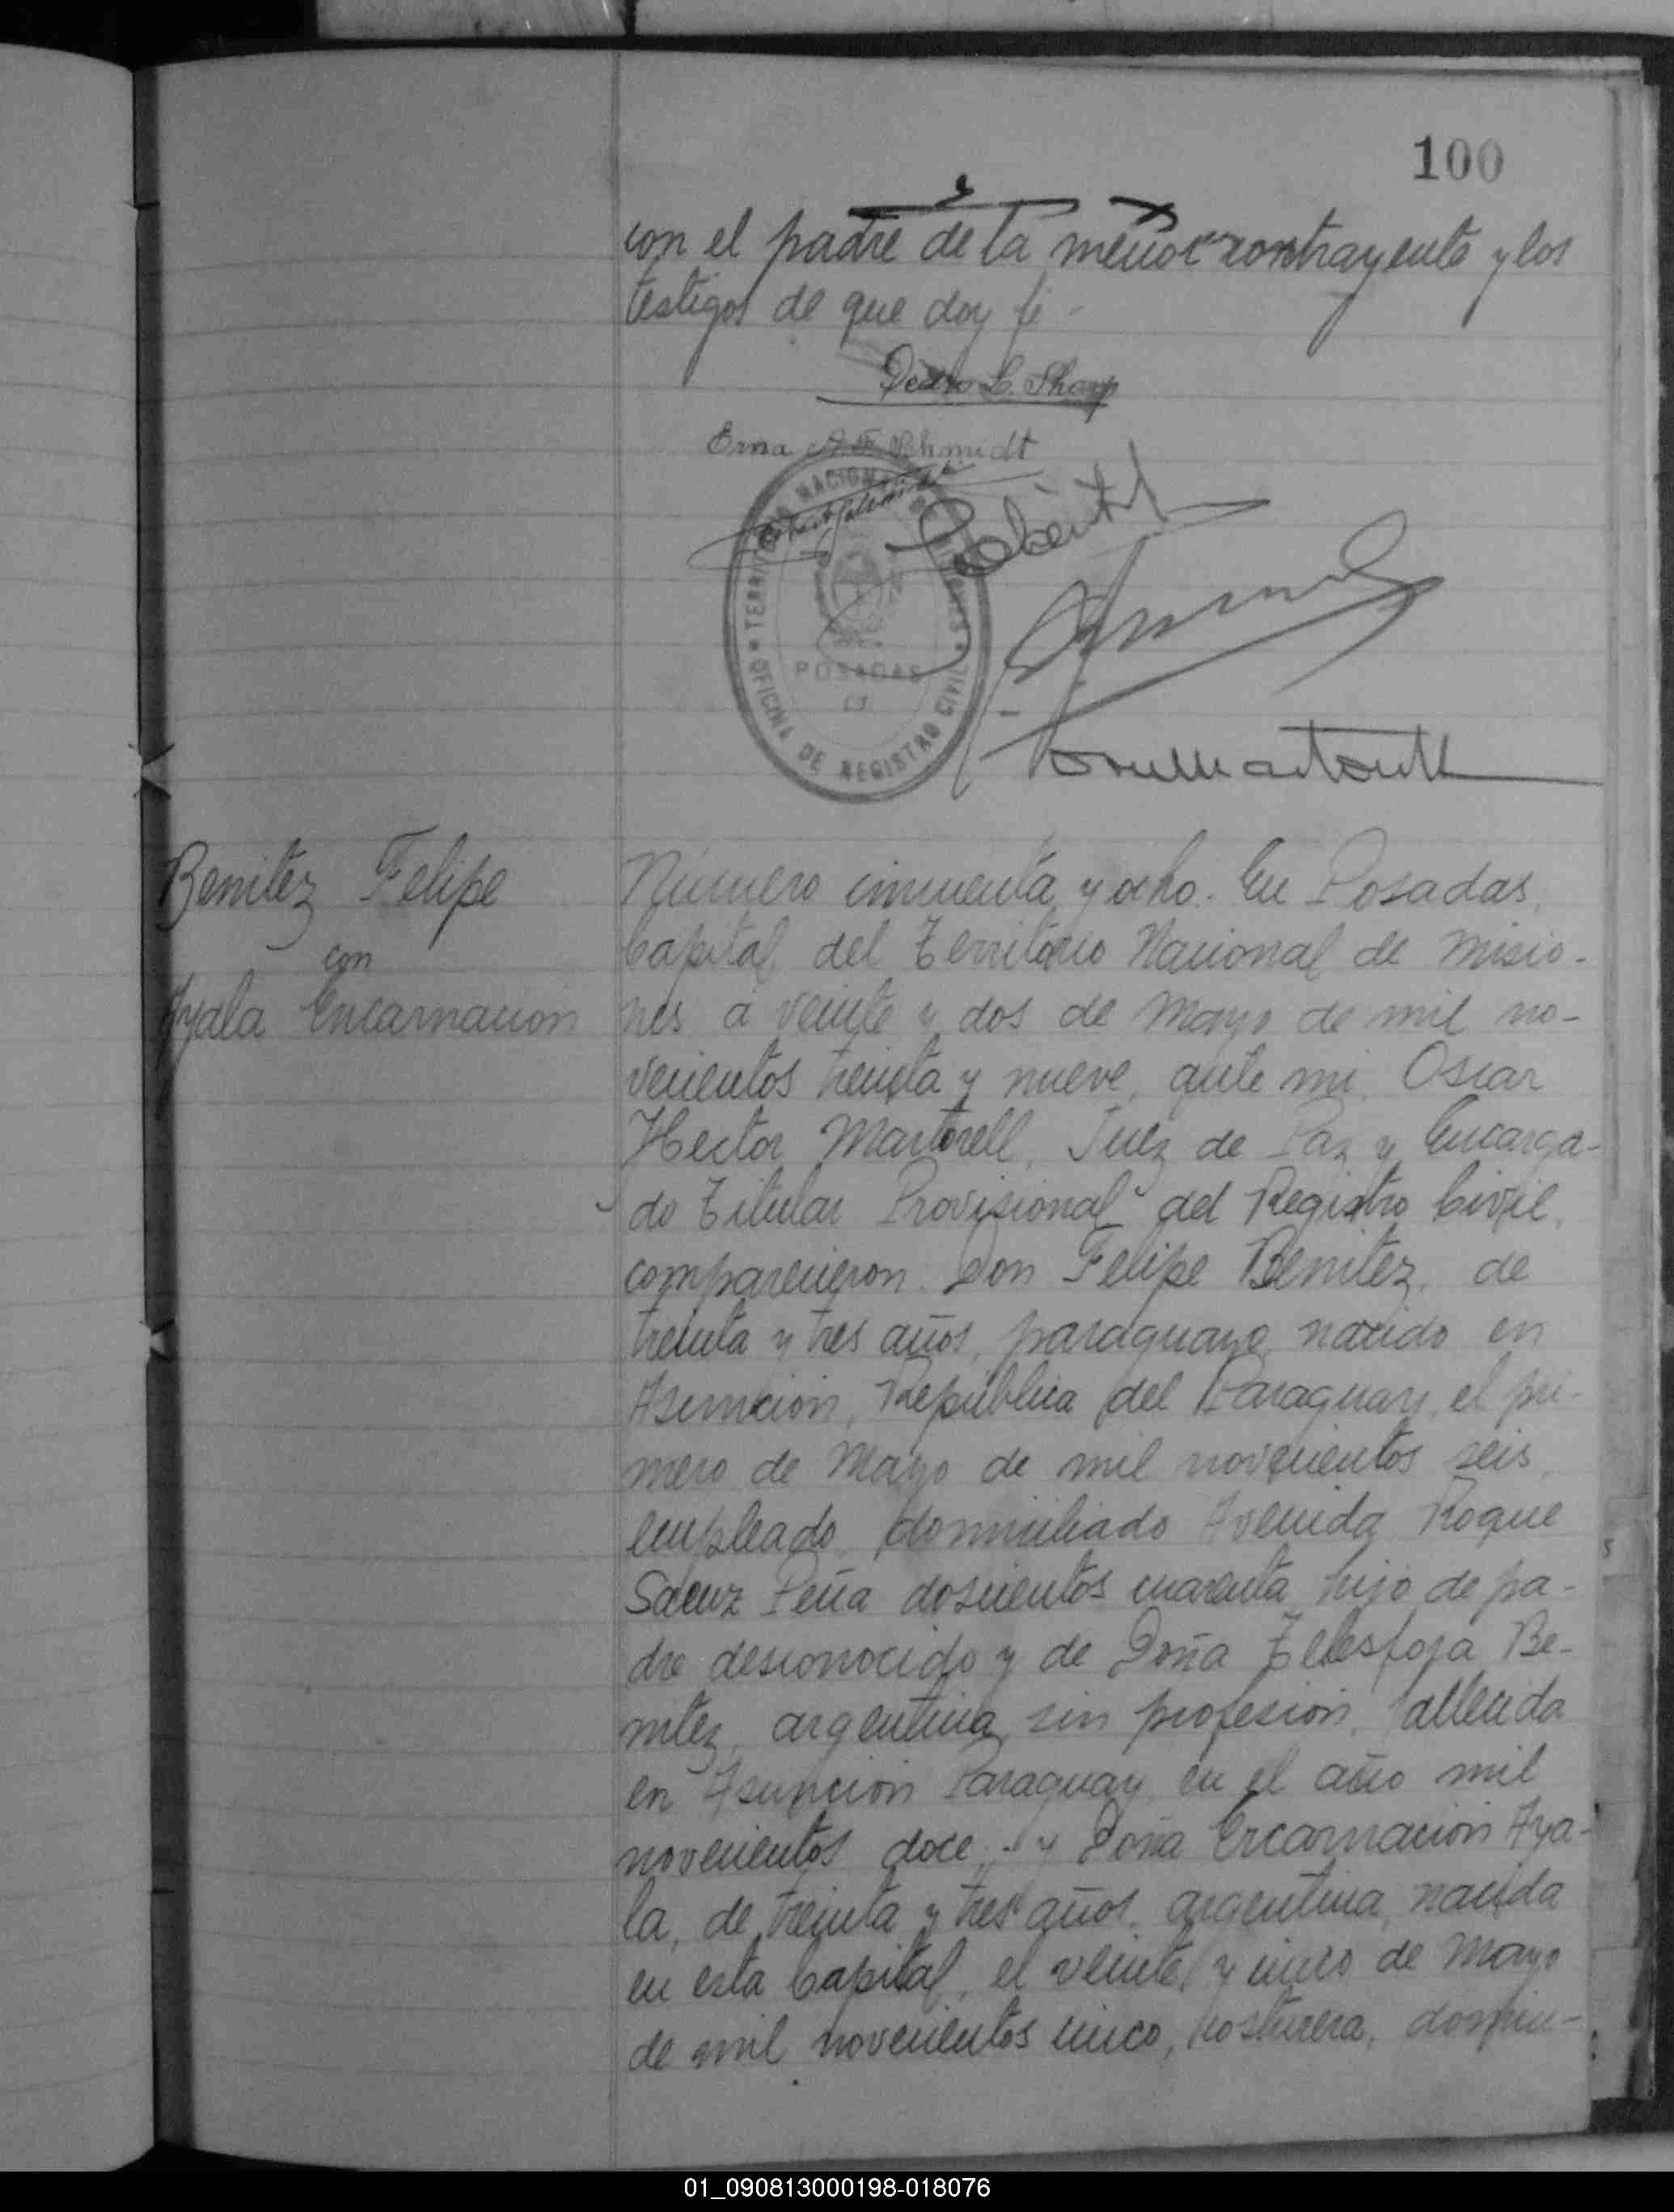 100
con el padre de la menor contrayente y los
testigos de que doy fé -
Pedro L. Sharp
Erna A. F. Schmidt
TERRITORIO NACIONAL DE MISIONES
POSADAS
OFICINA DE REGISTRO CIVIL
Benitez Felipe
con
Ayala Encarnacion
Número cincuenta y ocho. En Posadas,
Capital del Territorio Nacional de Misio-
nes, á veinte y dos de Mayo de mil no-
vecientos treinta y nueve, ante mi, Oscar
Hector Martorell, Juez de Paz y Encarga-
do Titular Provisional del Registro Civil,
comparecieron: Don Felipe Benitez, de
treinta y tres años, paraguayo, nacido en
Asuncion, Republica del Paraguay, el pri-
mero de Mayo de mil novecientos seis,
empleado, domiciliado Avenida Roque
Saenz Peña doscientos cuarenta, hijo de pa-
dre desconocido y de Doña Telesfora Be-
nitez, argentina, sin profesion, fallecida
en Asuncion Paraguay, en el año mil
novecientos doce; - y Doña Encarnacion Aya-
la, de treinta y tres años, argentina, nacida
en esta Capital, el veinte y cinco de Mayo
de mil novecientos cinco, costurera, domici-
01_090813000198-018076